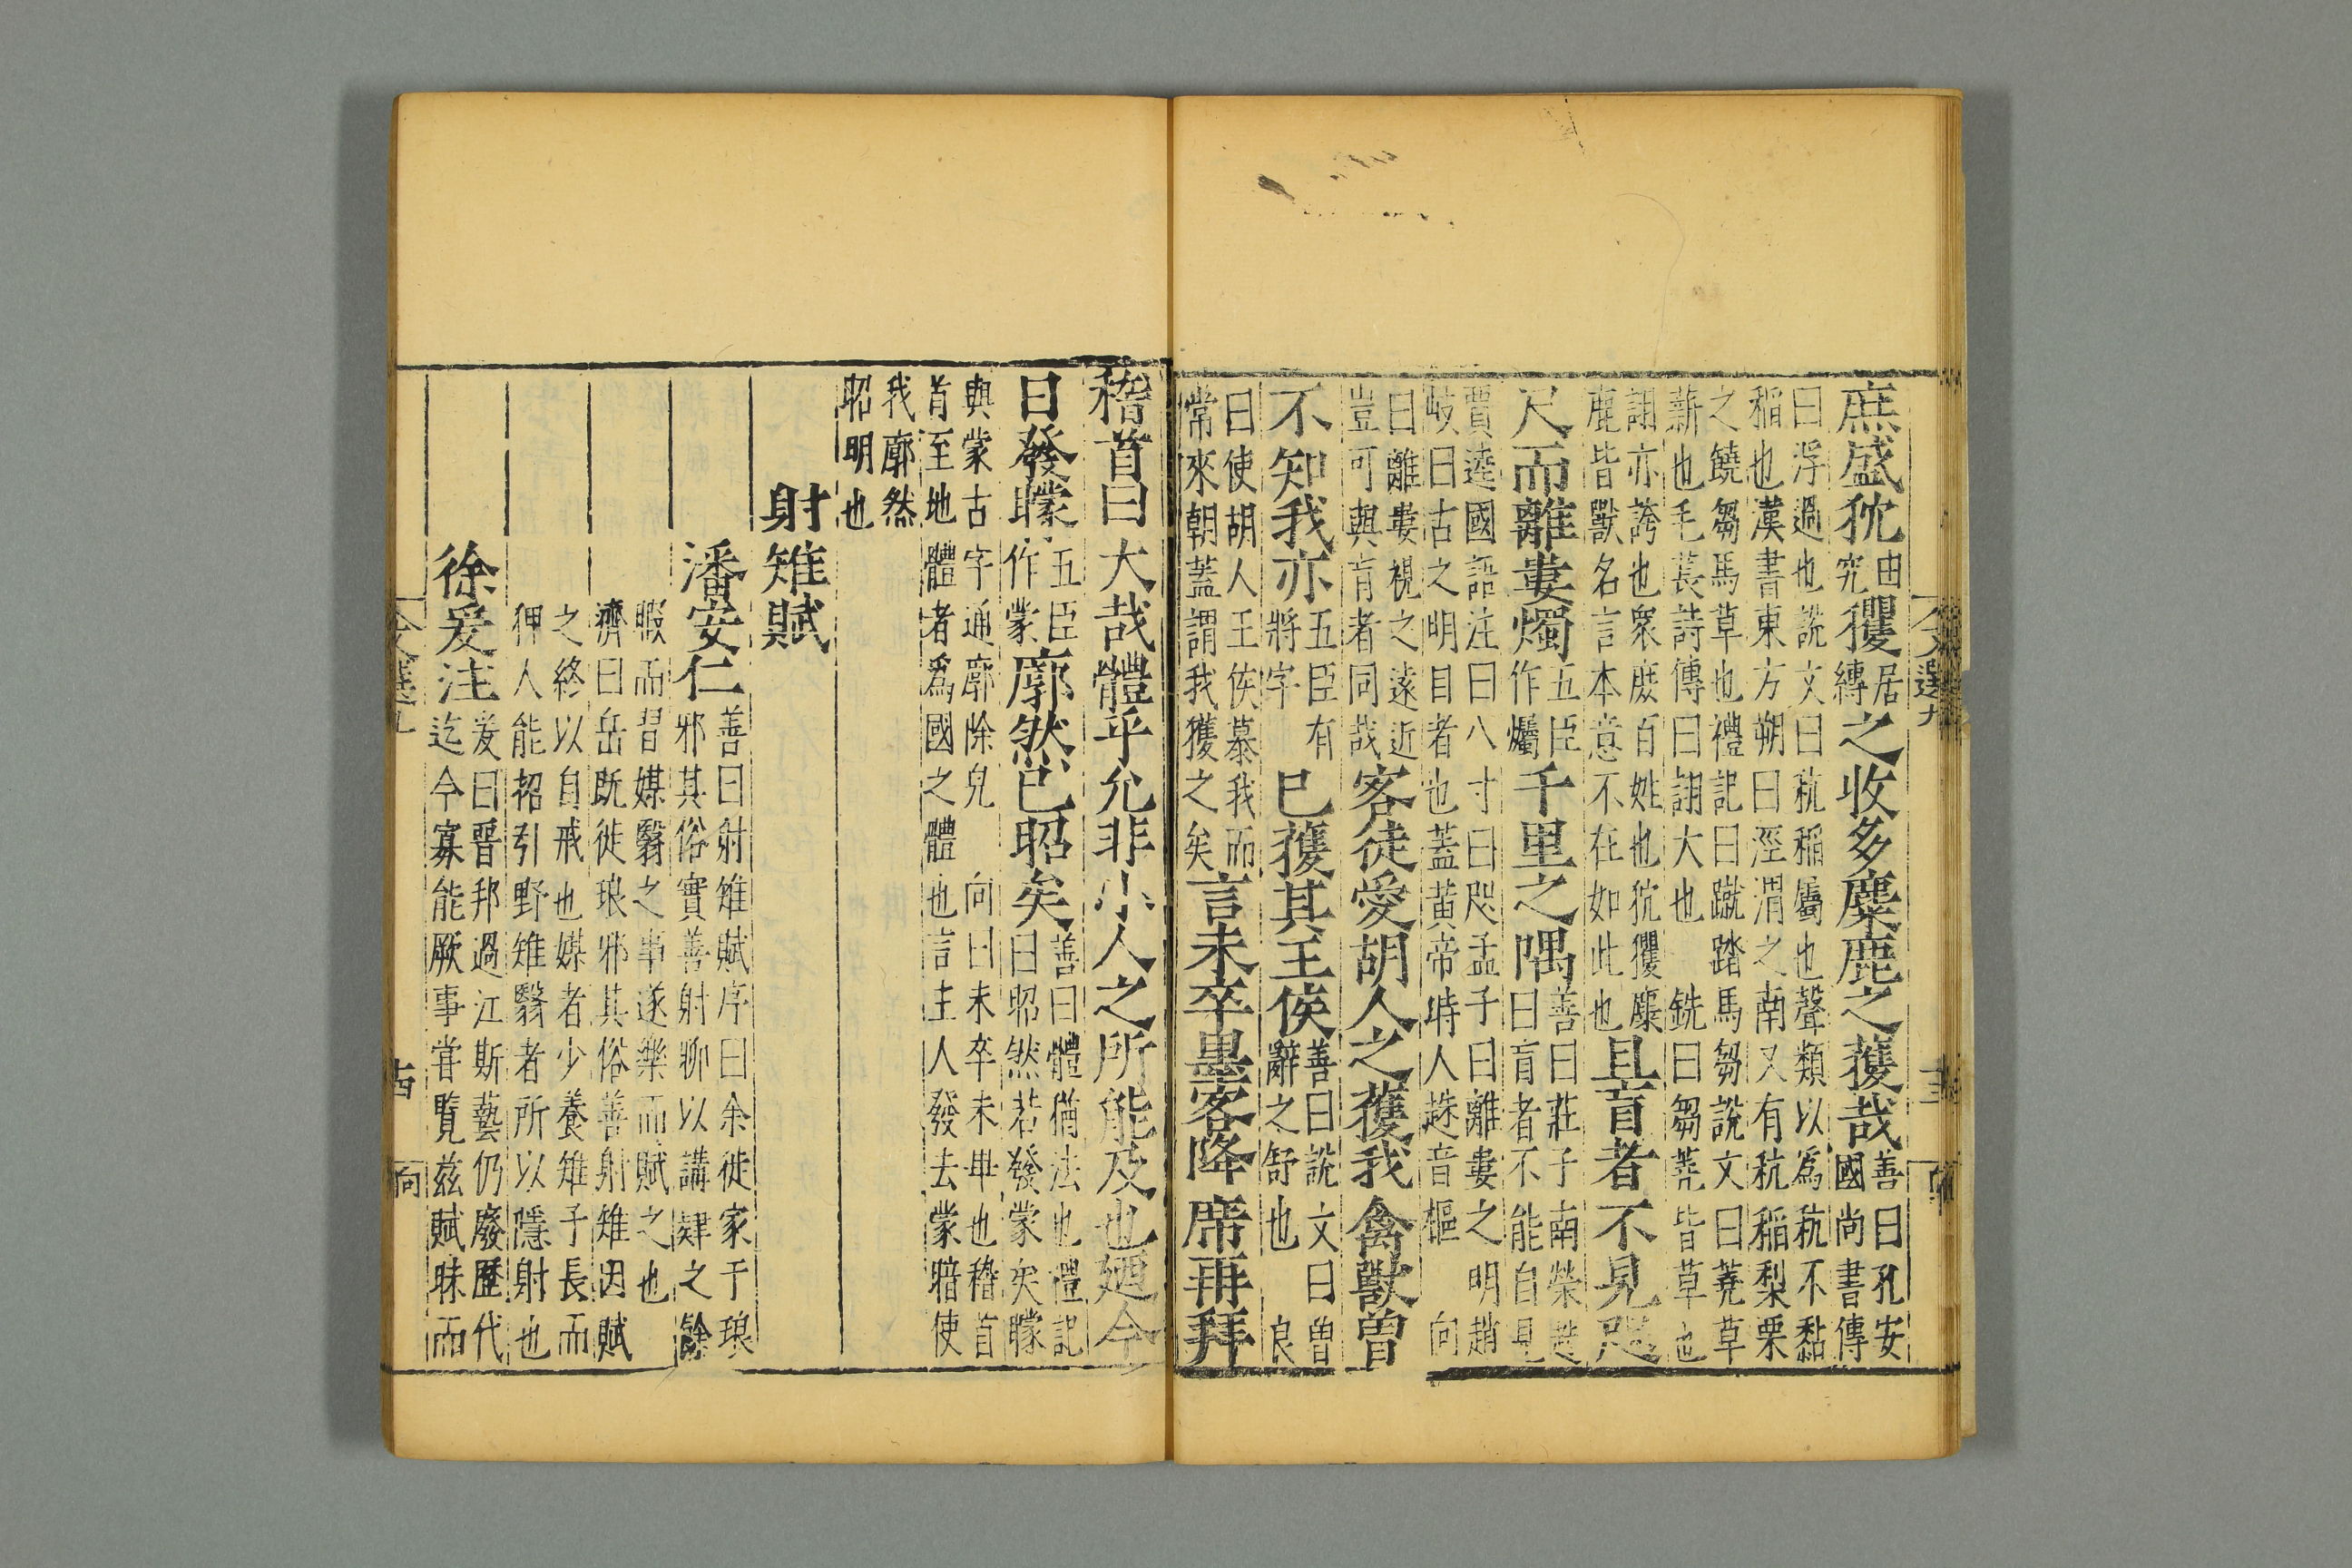 文選九 十三
庶盛狖由究玃居縛之收多麋鹿之獲哉善曰孔安國尚書傳
曰浮過也說文曰秔稻屬也聲類以爲秔不黏
稻也漢書東方朔曰涇渭之南又有秔稻梨栗
之饒芻馬草也禮記曰蹴踏馬芻說文曰蕘草
薪也毛萇詩傳曰詡大也 銑曰芻蕘皆草也
詡亦誇也衆庶百姓也狖玃麋鹿皆獸名言本意不在如此也且盲者不見咫
尺而離婁燭五臣作爥千里之隅善曰莊子南榮趎曰盲者不能自見
賈逵國語注曰八寸曰咫孟子曰離婁之明趙
岐曰古之明目者也蓋黃帝時人趎音樞 向
曰離婁視之遠近豈可與盲者同哉客徒愛胡人之獲我禽獸曾
不知我亦五臣有將字已獲其王侯善曰說文曰曾辭之舒也 良
曰使胡人王侯慕我而常來朝蓋謂我獲之矣言未卒墨客降席再拜
稽首曰大哉體乎允非小人之所能及也廼今
日發矇五臣作蒙廓然已昭矣善曰體猶法也禮記曰昭然若發蒙矣矇
與蒙古字通廓除皃 向曰未卒未畢也稽首
首至地體者爲國之體也言主人發去蒙暗使
我廓然
昭明也
射雉賦
潘安仁善曰射雉賦序曰余徙家于琅邪其俗實善射聊以講肄之餘
暇而習媒翳之事遂樂而賦之也
濟曰岳既徙琅邪其俗善射雉因賦
之終以自戒也媒者少養雉子長而
狎人能招引野雉翳者所以隱射也
徐爰注爰曰晉邦過江斯藝仍廢歷代迄今寡能厥事甞覽兹賦昧而
文選九 十四 向